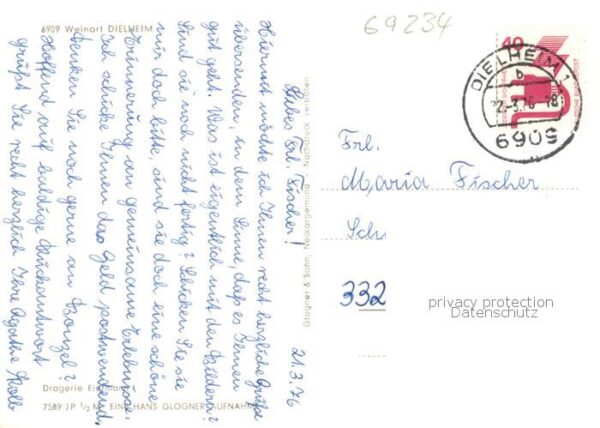 69234
6909 Weinort DIELHEIM
21.3.76
Liebes Frl. Fischer!
Hiermit möchte ich Ihnen recht herzliche Grüße
übersenden, in dem Sinne, daß es Ihnen
gut geht. Was ist eigentlich mit den Bildern?
Sind sie noch nicht fertig? Schicken Sie sie
mir doch bitte, sind sie doch eine schöne
Erinnerung an gemeinsame Erlebnisse.
Ich schicke Ihnen das Geld postwendend.
Denken Sie noch gerne an Bonzel?
Hoffend auf baldige Rückantwort
grüßt Sie recht herzlich Ihre Agathe Kolb
Drogerie
7589 JP 1/2 M EIN HANS GLOGNER AUFNAHME
Glogner & Sohn, Neckargemünd - Nachdruck verboten
40
DEUTSCHE BUNDESPOST
DIELHEIM 1
b
22.-3.76-18
6909
Frl.
Maria Fischer
Sch
332
privacy protection
Datenschutz